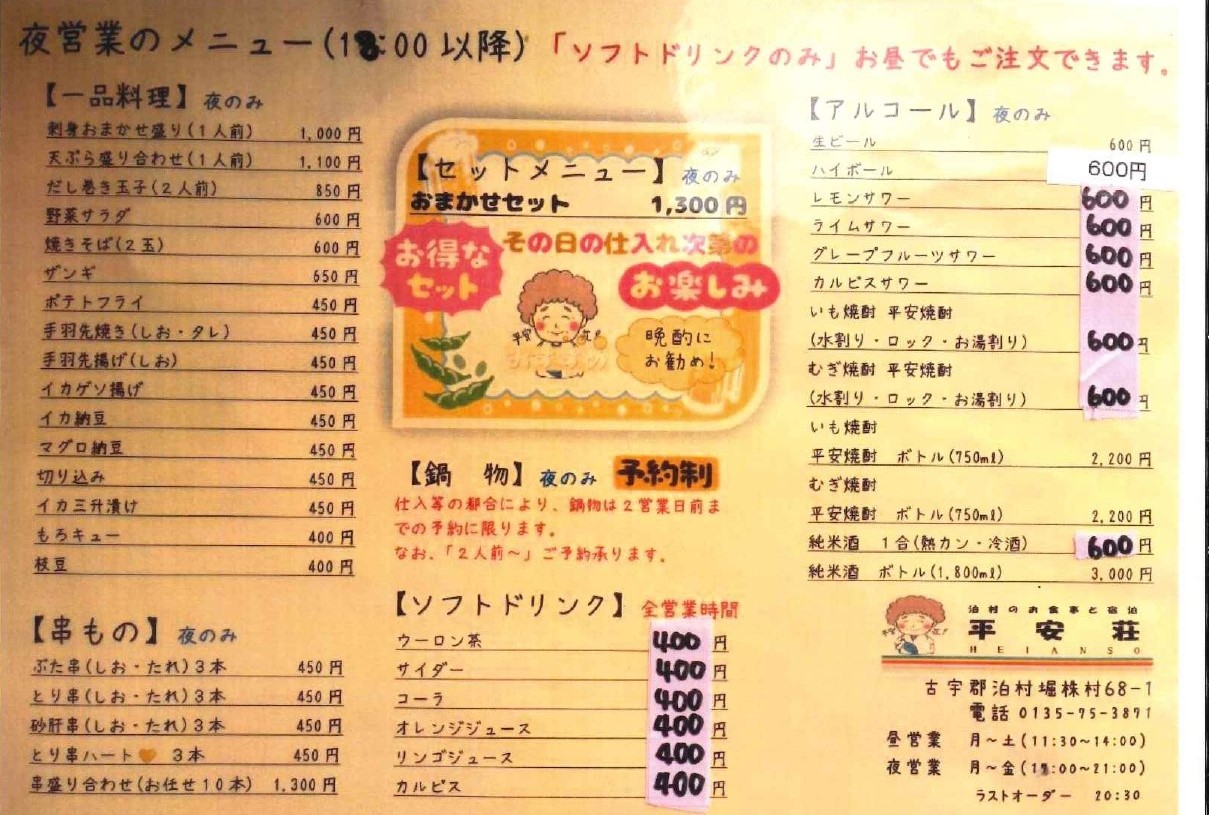 夜営業のメニュー(18:00以降)「ソフトドリンクのみ」お昼でもご注文できます。
【一品料理】夜のみ
刺身おまかせ盛り(1人前) 1,000円
天ぷら盛り合わせ(1人前) 1,100円
だし巻き玉子(2人前) 850円
野菜サラダ 600円
焼きそば(2玉) 600円
ザンギ 650円
ポテトフライ 450円
手羽先焼き(しお・タレ) 450円
手羽先揚げ(しお) 450円
イカゲソ揚げ 450円
イカ納豆 450円
マグロ納豆 450円
切り込み 450円
イカ三升漬け 450円
もろキュー 400円
枝豆 400円
【串もの】夜のみ
ぶた串(しお・たれ)3本 450円
とり串(しお・たれ)3本 450円
砂肝串(しお・たれ)3本 450円
とり串ハート🧡 3本 450円
串盛り合わせ(お任せ10本) 1,300円
【セットメニュー】夜のみ
おまかせセット 1,300円
お得な
セット
その日の仕入れ次第の
お楽しみ
晩酌に
お勧め!
【鍋 物】夜のみ 予約制
仕入等の都合により、鍋物は2営業日前ま
での予約に限ります。
なお、「2人前~」ご予約承ります。
【ソフトドリンク】全営業時間
ウーロン茶 400円
サイダー 400円
コーラ 400円
オレンジジュース 400円
リンゴジュース 400円
カルピス 400円
【アルコール】夜のみ
生ビール 600円
ハイボール 600円
レモンサワー 600円
ライムサワー 600円
グレープフルーツサワー 600円
カルピスサワー 600円
いも焼酎 平安焼酎
(水割り・ロック・お湯割り) 600円
むぎ焼酎 平安焼酎
(水割り・ロック・お湯割り) 600円
いも焼酎
平安焼酎 ボトル(750ml) 2,200円
むぎ焼酎
平安焼酎 ボトル(750ml) 2,200円
純米酒 1合(熱カン・冷酒) 600円
純米酒 ボトル(1,800ml) 3,000円
泊村のお食事と宿泊
平安荘
HEIANSO
古宇郡泊村堀株村68-1
電話 0135-75-3871
昼営業 月~土(11:30~14:00)
夜営業 月~金(18:00~21:00)
ラストオーダー 20:30